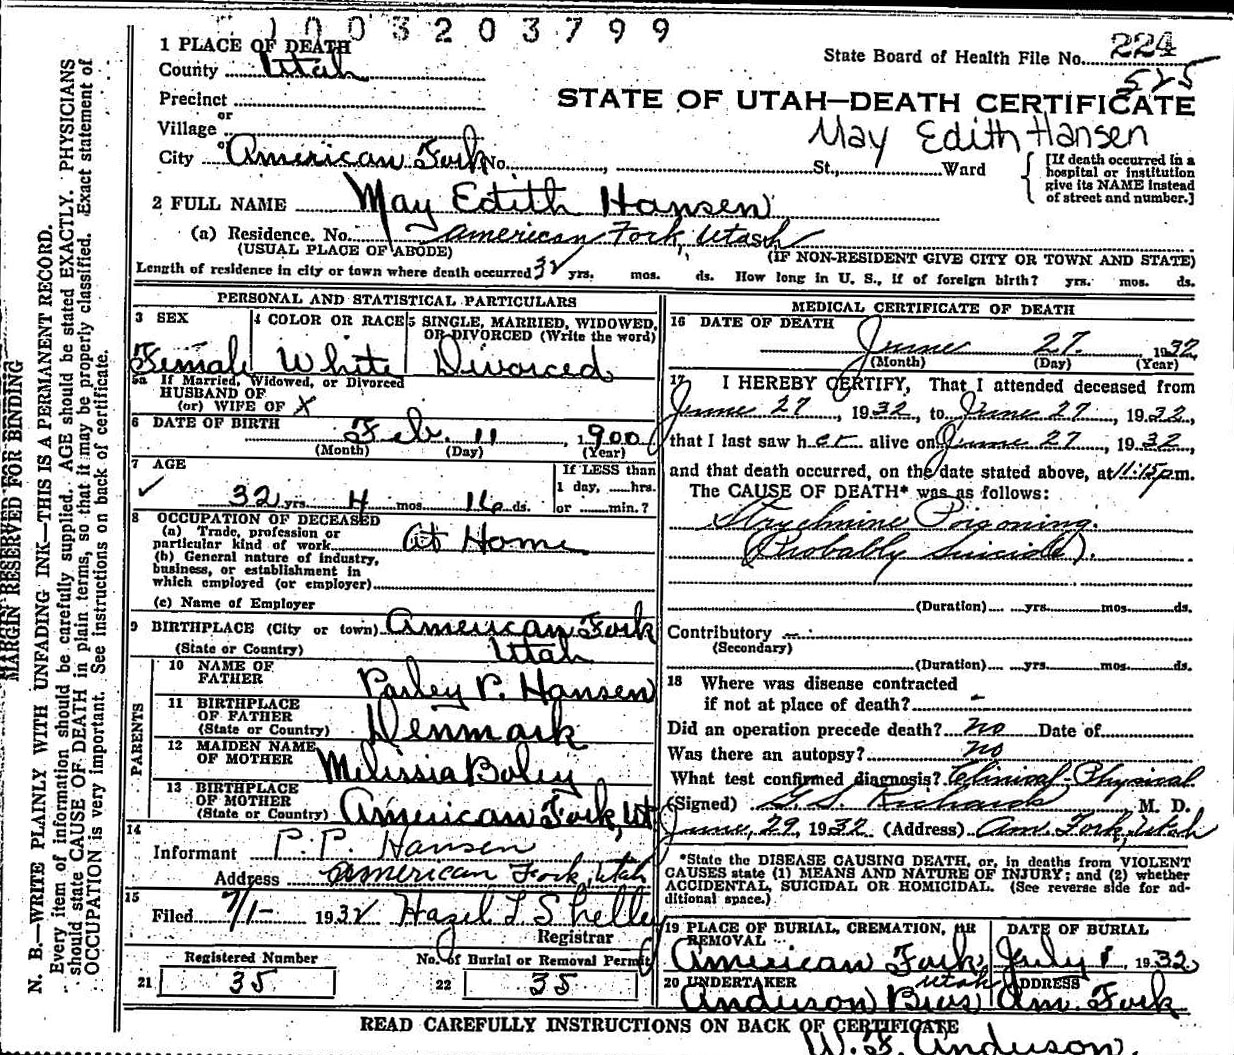 1003203799
1 PLACE OF DEATH
County Utah
State Board of Health File No. 224
525
Precinct
STATE OF UTAH—DEATH CERTIFICATE
or
Village
May Edith Hansen
or
City American Fork No. , St., Ward
[If death occurred in a
hospital or institution
give its NAME instead
of street and number.]
2 FULL NAME May Edith Hansen
(a) Residence. No. American Fork, Utah
(USUAL PLACE OF ABODE) (IF NON-RESIDENT GIVE CITY OR TOWN AND STATE)
Length of residence in city or town where death occurred 32 yrs. mos. ds. How long in U. S., if of foreign birth? yrs. mos. ds.
PERSONAL AND STATISTICAL PARTICULARS
3 SEX
Female
4 COLOR OR RACE
White
5 SINGLE, MARRIED, WIDOWED,
OR DIVORCED (Write the word)
Divorced
5a If Married, Widowed, or Divorced
HUSBAND OF
(or) WIFE OF X
6 DATE OF BIRTH Feb. 11, 1900
(Month) (Day) (Year)
7 AGE
✓ 32 yrs 4 mos 16 ds.
If LESS than
1 day, ......hrs.
or ........min.?
8 OCCUPATION OF DECEASED
(a) Trade, profession or
particular kind of work At Home
(b) General nature of industry,
business, or establishment in
which employed (or employer)
(c) Name of Employer
9 BIRTHPLACE (City or town) American Fork
(State or Country) Utah
PARENTS
10 NAME OF
FATHER Parley P. Hansen
11 BIRTHPLACE
OF FATHER
(State or Country) Denmark
12 MAIDEN NAME
OF MOTHER Melissia Boley
13 BIRTHPLACE
OF MOTHER
(State or Country) American Fork, Ut
14
Informant P. P. Hansen
Address American Fork, Utah
15
Filed 7/1- 1932 Hazel L Shelley
Registrar
Registered Number
21 35
No. of Burial or Removal Permit
22 35
MEDICAL CERTIFICATE OF DEATH
16 DATE OF DEATH
June 27. 1932
(Month) (Day) (Year)
17 I HEREBY CERTIFY, That I attended deceased from
June 27, 1932, to June 27, 1932,
that I last saw her alive on June 27, 1932,
and that death occurred, on the date stated above, at 11:15 p.m.
The CAUSE OF DEATH* was as follows:
Strychnine Poisoning.
(Probably Suicide).
(Duration) yrs. mos. ds.
Contributory
(Secondary)
(Duration) yrs. mos. ds.
18 Where was disease contracted
if not at place of death? -
Did an operation precede death? no Date of
Was there an autopsy? no
What test confirmed diagnosis? Clinical-Physical
(Signed) G. S. Richards, M. D.
June, 29, 1932 (Address) Am. Fork, Utah
*State the DISEASE CAUSING DEATH, or, in deaths from VIOLENT
CAUSES state (1) MEANS AND NATURE OF INJURY; and (2) whether
ACCIDENTAL, SUICIDAL OR HOMICIDAL. (See reverse side for ad-
ditional space.)
19 PLACE OF BURIAL, CREMATION, OR
REMOVAL
American Fork
Utah
DATE OF BURIAL
July 1, 1932
20 UNDERTAKER
Anderson Bros
ADDRESS
Am. Fork
READ CAREFULLY INSTRUCTIONS ON BACK OF CERTIFICATE
W. F. Anderson.
MARGIN RESERVED FOR BINDING
N. B.—WRITE PLAINLY WITH UNFADING INK—THIS IS A PERMANENT RECORD.
Every item of information should be carefully supplied. AGE should be stated EXACTLY. PHYSICIANS
should state CAUSE OF DEATH in plain terms, so that it may be properly classified. Exact statement of
OCCUPATION is very important. See instructions on back of certificate.